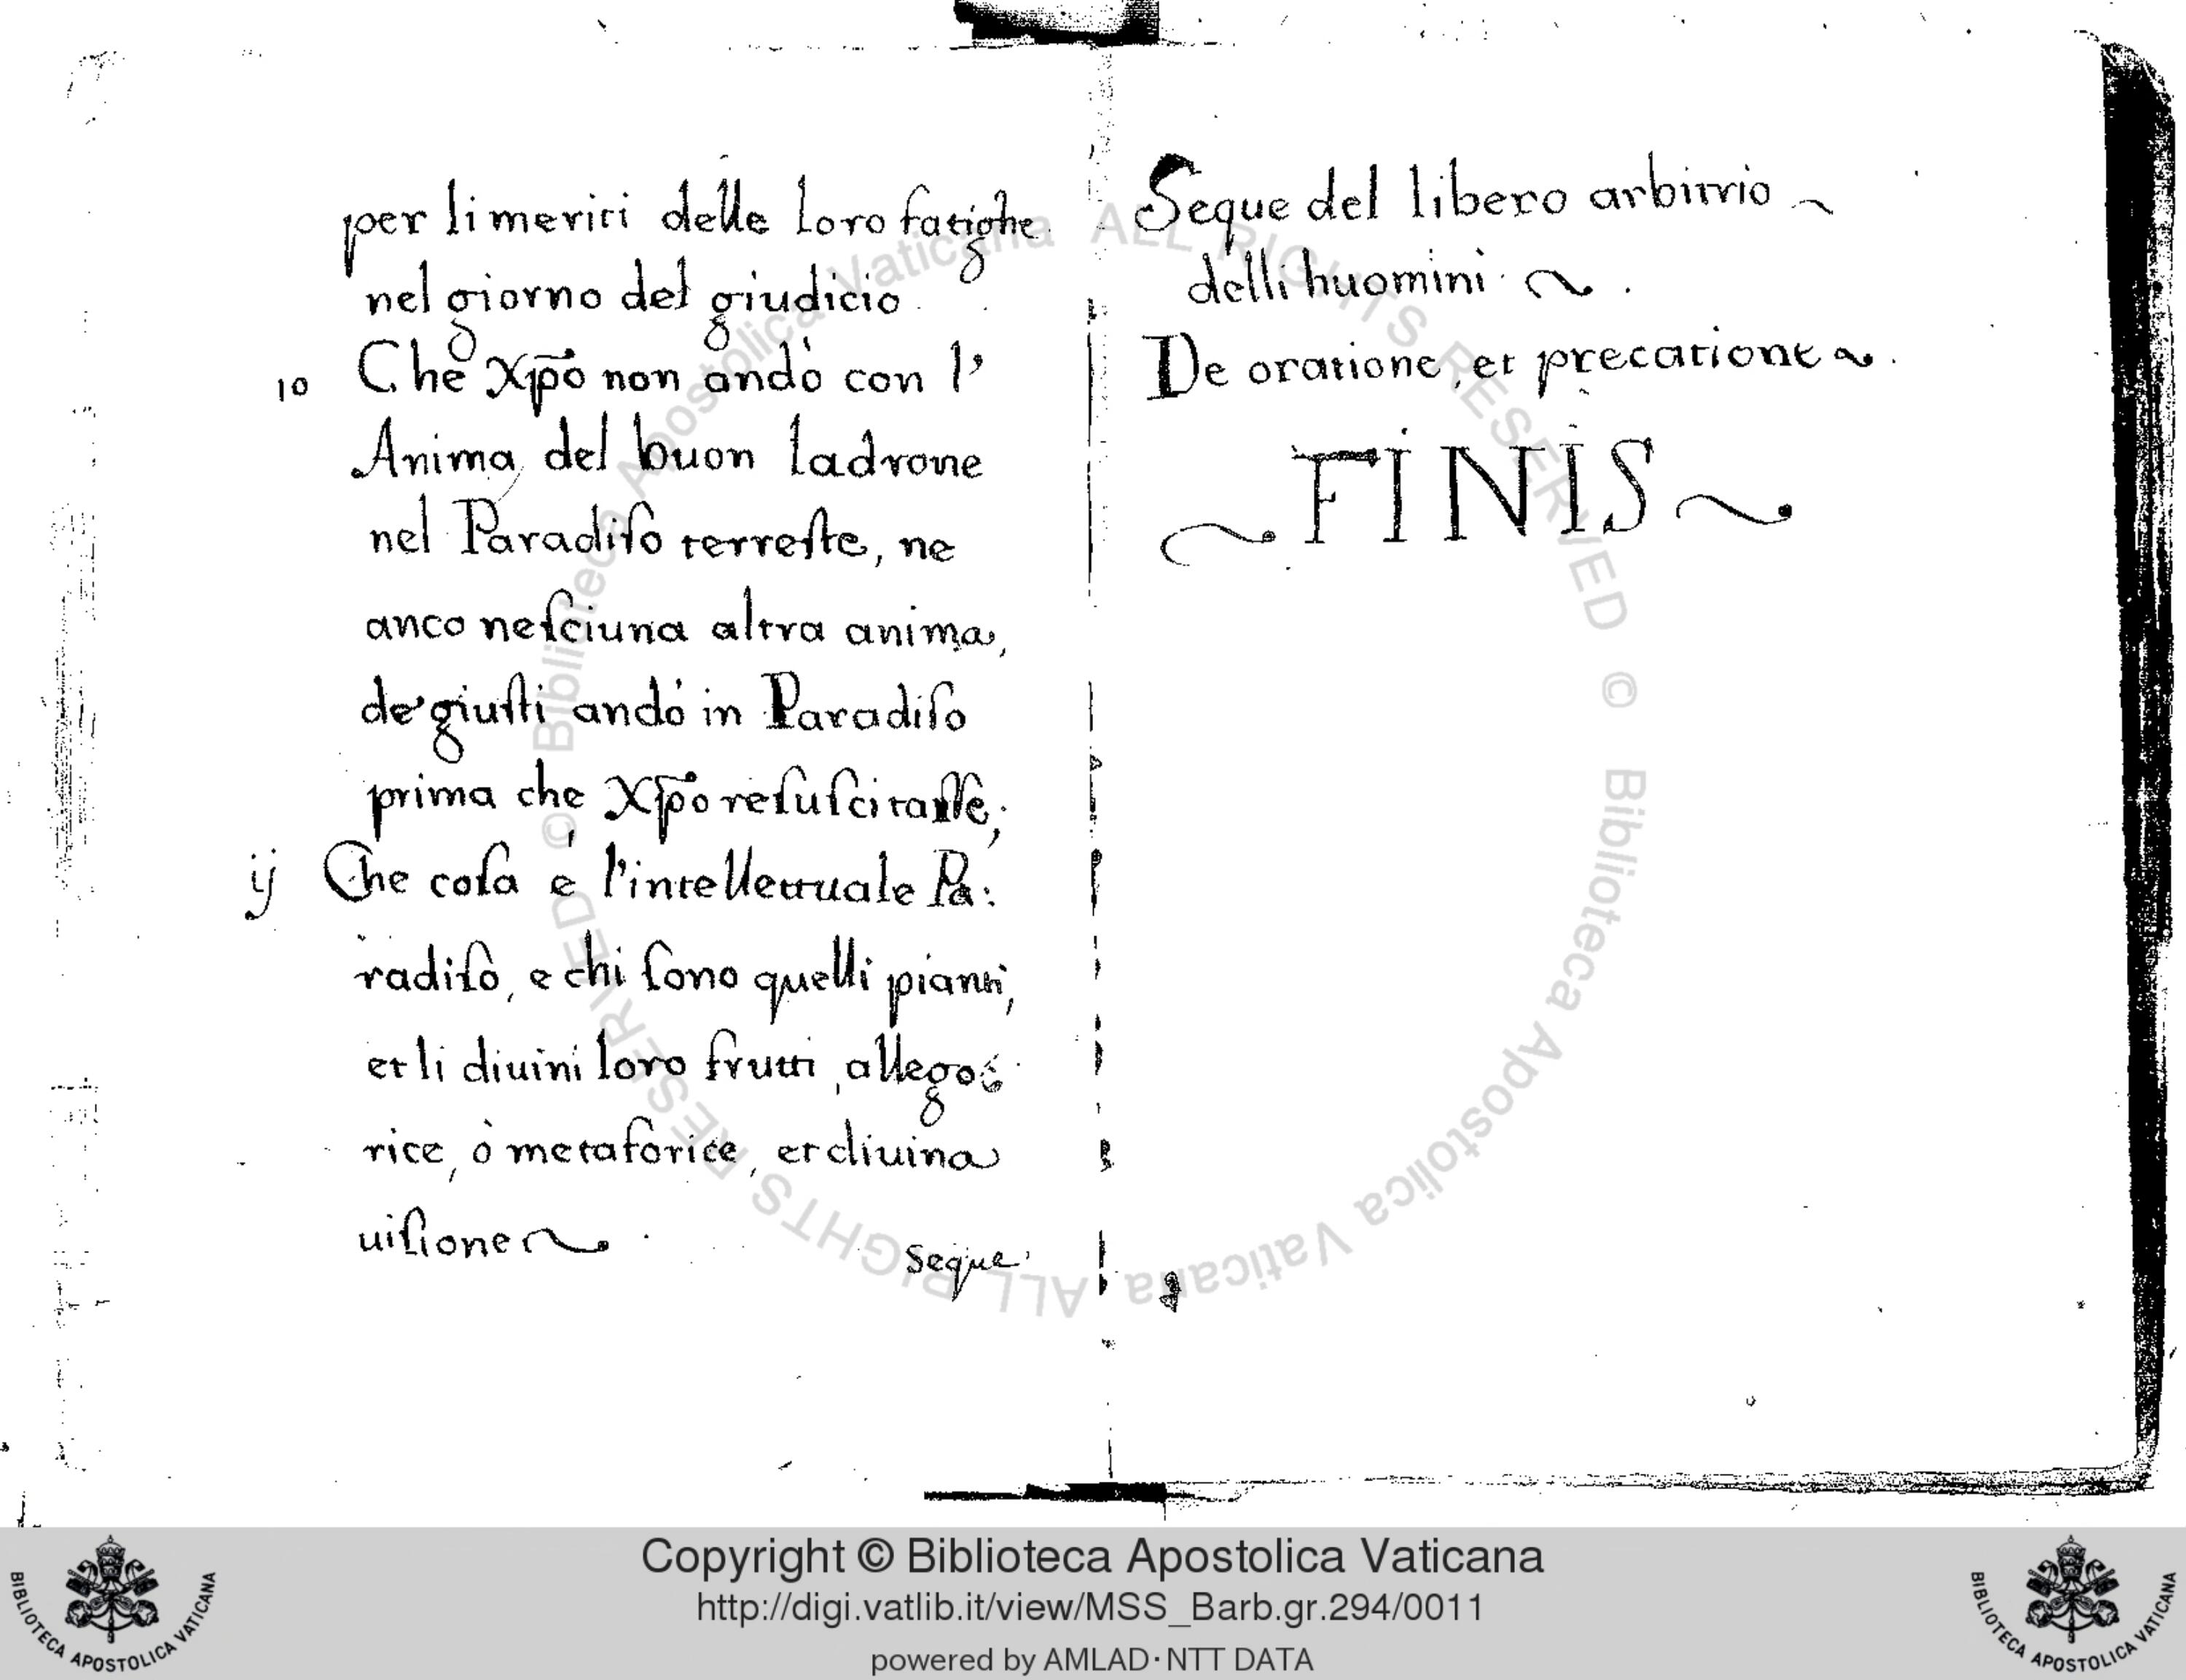 per li meriti delle loro fatighe
nel giorno del giudicio.
10 Che Xp̄o non andò con l'
Anima del buon ladrone
nel Paradiſo terreſte, ne
anco neſciuna altra anima,
de' giuſti andò in Paradiſo
prima che Xp̄o reſuſcitaſſe,
ij Che coſa è l'intellettuale Pa:
radiſo, e chi ſono quelli pianti,
et li diuini loro frutti, allego:
rice, ò metaforice, et diuina
uiſione
seque
Seque del libero arbitrio ~
delli huomini ~.
De oratione, et precatione ~.
~ FINIS ~
Copyright © Biblioteca Apostolica Vaticana
http://digi.vatlib.it/view/MSS_Barb.gr.294/0011
powered by AMLAD·NTT DATA
BIBLIOTECA APOSTOLICA VATICANA
BIBLIOTECA APOSTOLICA VATICANA
© Biblioteca Apostolica Vaticana ALL RIGHTS RESERVED © Biblioteca Apostolica Vaticana ALL RIGHTS RESERVED